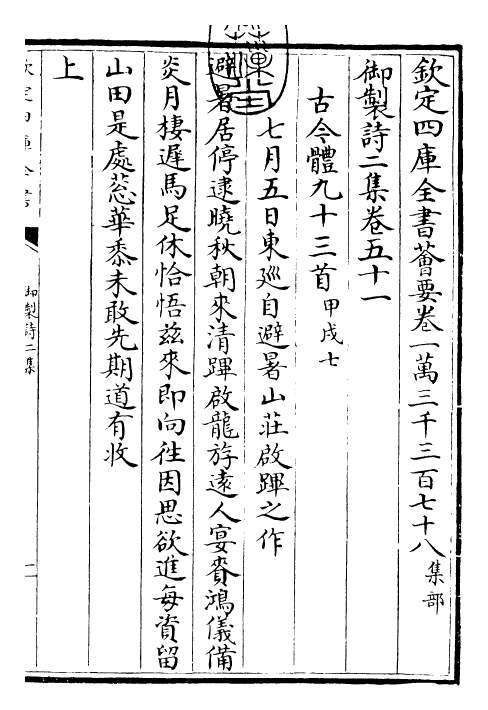 欽定四庫全書薈要卷一萬三千三百七十八 集部
御製詩二集卷五十一
古今體九十三首 甲戌七
七月五日東巡自避暑山莊啟蹕之作
避暑居停逮曉秋朝來清蹕啟龍斿遠人宴賚鴻儀備
炎月棲遲馬足休恰悟茲來即向徃因思欲進每資留
山田是處蕊華黍未敢先期道有收
上
欽定四庫全書
御製詩二集